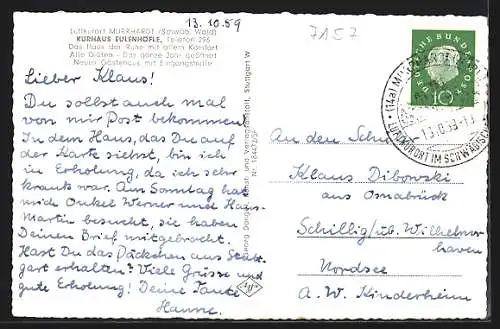 13.10.59
7157
Luftkurort MURRHARDT (Schwäb. Wald)
KURHAUS EULENHÖFLE, Telefon 296
Das Haus der Ruhe mit allem Komfort
Alle Diäten - Das ganze Jahr geöffnet
Neues Gästehaus mit Eingangshalle
DEUTSCHE BUNDESPOST
10
(14a)
LUFTKURORT IM SCHWÄBISCH
Lieber Klaus!
Du sollst auch mal
von mir Post bekommen!
In dem Haus, das Du auf
der Karte siehst, bin ich
in Erholung, da ich sehr
krank war. Am Sonntag hat
mich Onkel Werner und Hans-
Martin besucht, sie haben
Deinen Brief mitgebracht.
Hast Du das Päckchen aus Stutt-
gart erhalten? Viele Grüsse und
gute Erholung! Deine Tante
Hanne.
An den Schü
Klaus Dibowski
aus Osnabrück
Schillig / u. Wilhelms-
haven
Nordsee
A.W. Kinderheim